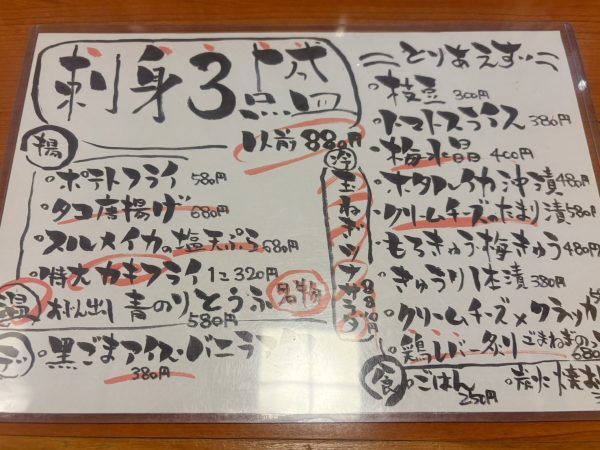 刺身3点盛
1人前 880円
揚
ポテトフライ 580円
タコ唐揚げ 680円
スルメイカの塩天ぷら 680円
特大カキフライ 1コ 320円
温
おでん出し 青のりとうふ 名物
580円
デ
黒ごまアイス・バニラ
380円
冷
玉ねぎツナサラダ 880円
とりあえず
枝豆 300円
トマトスライス 380円
梅水晶 400円
ホタルイカ沖漬 480円
クリームチーズのたまり漬 580円
もろきゅう 梅きゅう 480円
きゅうり1本漬 380円
クリームチーズ×クラッカ
鶏レバー炙り ごまねぎの
680
食
ごはん 250円
炭火焼お